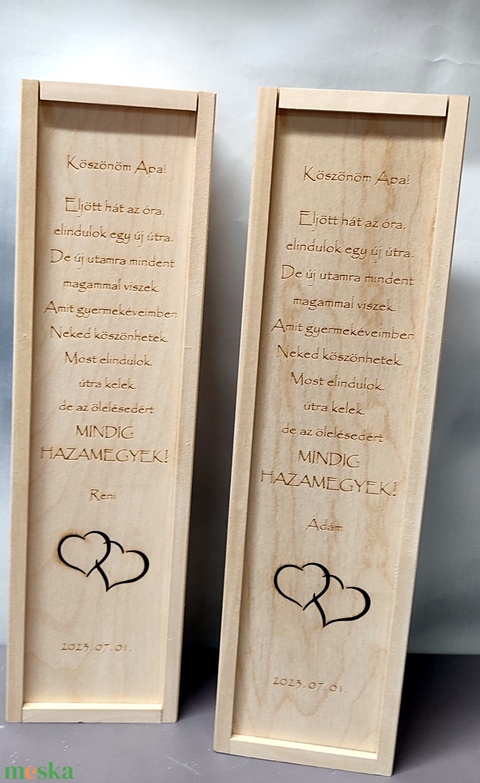 Köszönöm Apa!
Eljött hát az óra,
elindulok egy új útra.
De új utamra mindent
magammal viszek.
Amit gyermekéveimben
Neked köszönhetek.
Most elindulok
útra kelek
de az ölelésedért
MINDIG
HAZAMEGYEK!
Reni
2023.07.01.
Köszönöm Apa!
Eljött hát az óra,
elindulok egy új útra.
De új utamra mindent
magammal viszek.
Amit gyermekéveimben
Neked köszönhetek.
Most elindulok
útra kelek
de az ölelésedért
MINDIG
HAZAMEGYEK!
Ádám
2023.07.01.
meska